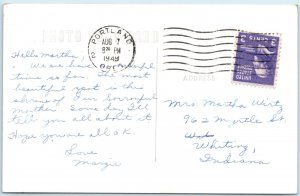 PORTLAND
AUG 7
8 30 PM
1949
OREG.
2
ADDRESS
Hello Martha,
We are having a
time so far. The most
beautiful spot is this
shrine of Our Sorrowful
Mother. Some day I'll
tell you all about it
Hope you are all OK
Love
Margie
Mrs. Martha Wirtz
962 Myrtle St
Whiting,
Indiana